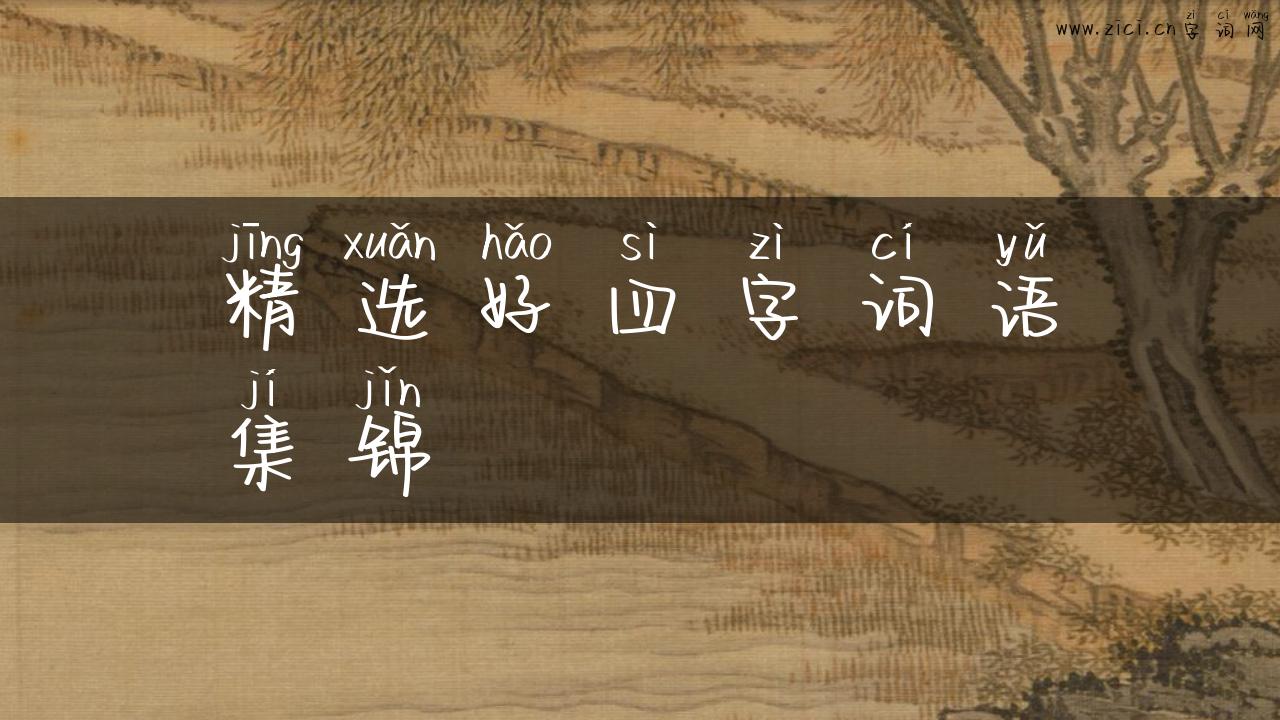 zì cí wǎng
www.zici.cn字词网
jīng xuǎn hǎo sì zì cí yǔ
精选好四字词语
jí jǐn
集锦